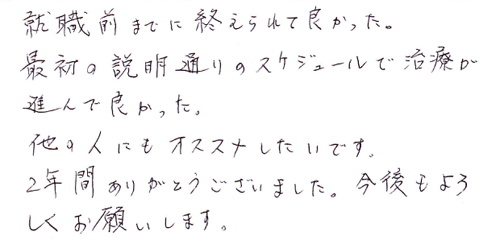 就職前までに終えられて良かった。
最初の説明通りのスケジュールで治療が
進んで良かった。
他の人にもオススメしたいです。
2年間ありがとうございました。今後もよろ
しくお願いします。